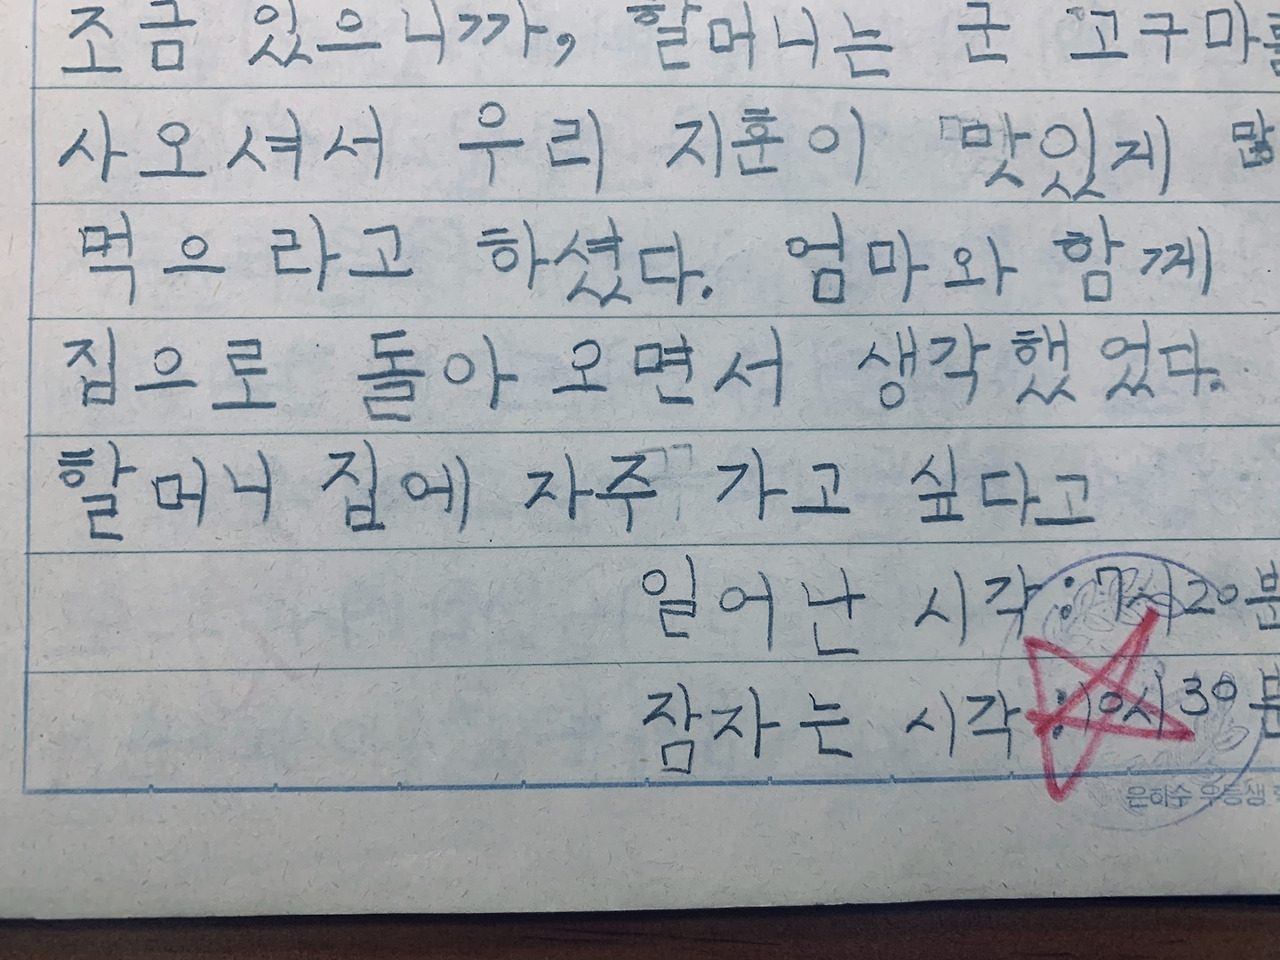 조금 있으니까, 할머니는 군 고구마를
사오셔서 우리 지훈이 맛있게 많
먹으라고 하셨다. 엄마와 함께
집으로 돌아오면서 생각했었다.
할머니 집에 자주 가고 싶다고
일어난 시각 : 7시 20분
잠자는 시각 : 10시 30분
은하수 우등생